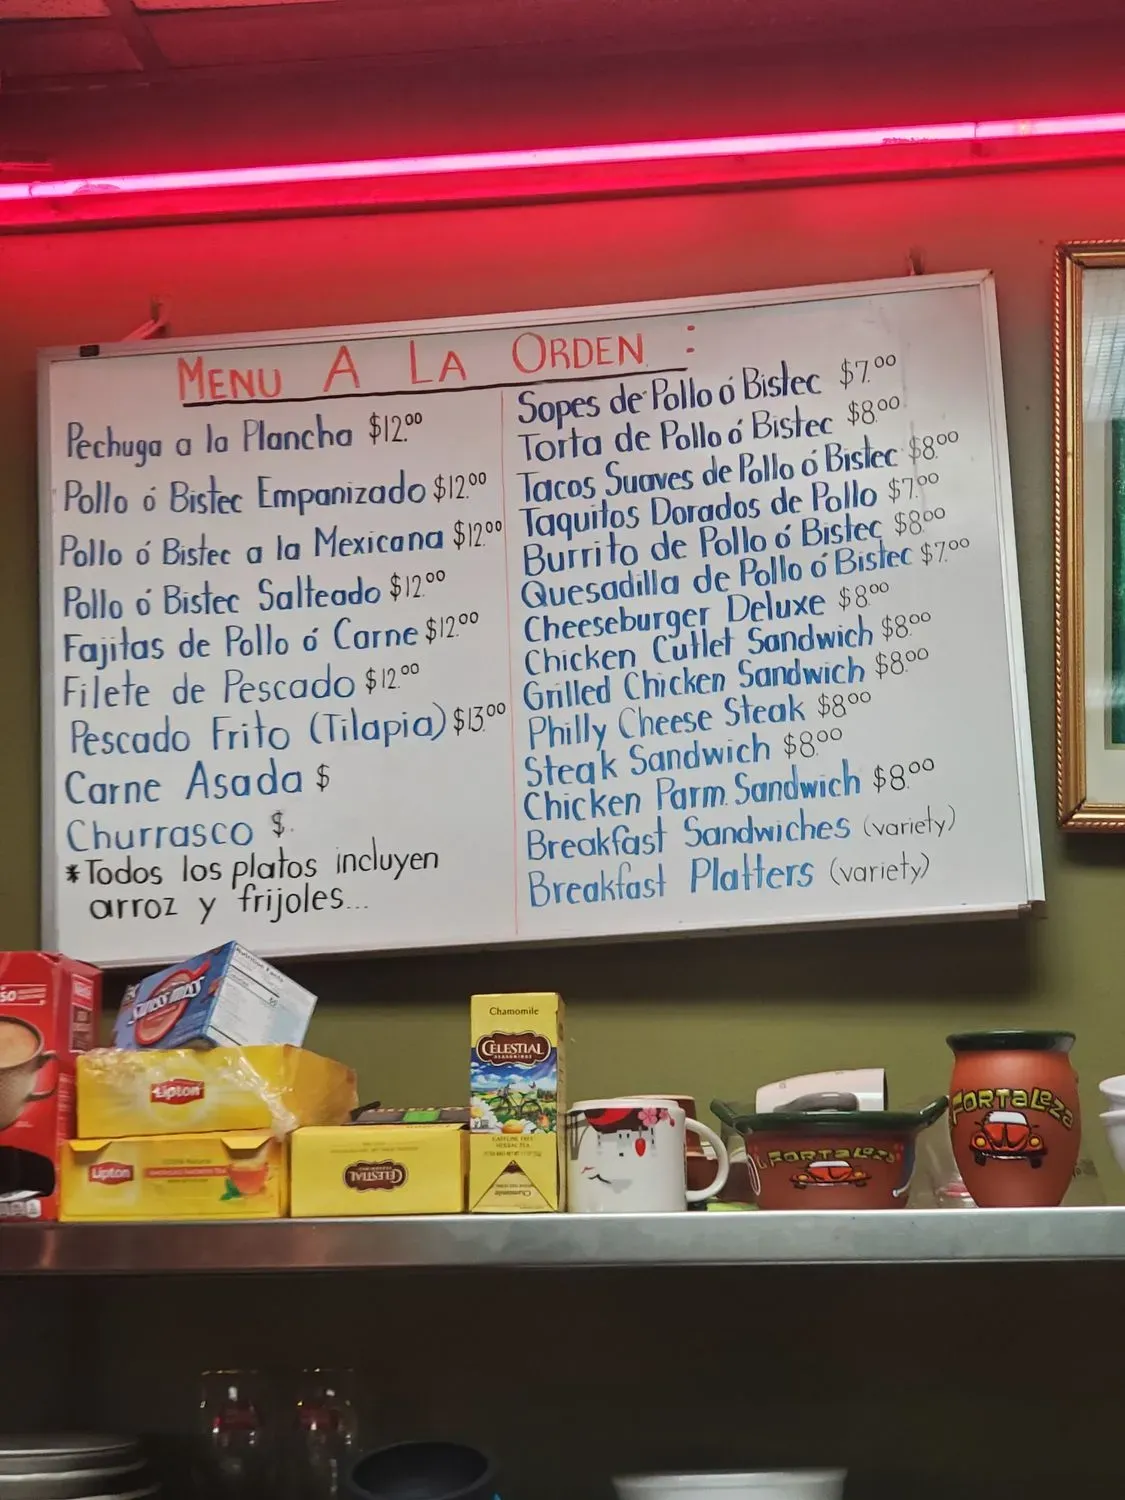 MENU A LA ORDEN :
Pechuga a la Plancha $12.00
Pollo ó Bistec Empanizado $12.00
Pollo ó Bistec a la Mexicana $12.00
Pollo ó Bistec Salteado $12.00
Fajitas de Pollo ó Carne $12.00
Filete de Pescado $12.00
Pescado Frito (Tilapia) $13.00
Carne Asada $
Churrasco $.
*Todos los platos incluyen
arroz y frijoles...
Sopes de Pollo ó Bistec $7.00
Torta de Pollo ó Bistec $8.00
Tacos Suaves de Pollo ó Bistec $8.00
Taquitos Dorados de Pollo $7.00
Burrito de Pollo ó Bistec $8.00
Quesadilla de Pollo ó Bistec $7.00
Cheeseburger Deluxe $8.00
Chicken Cutlet Sandwich $8.00
Grilled Chicken Sandwich $8.00
Philly Cheese Steak $8.00
Steak Sandwich $8.00
Chicken Parm. Sandwich $8.00
Breakfast Sandwiches (variety)
Breakfast Platters (variety)
50
SWISS MISS
Nutrition Facts
Lipton
Lipton
CELESTIAL
Chamomile
CELESTIAL
SEASONINGS
CAFFEINE FREE
HERBAL TEA
Chamomile
FORTALEZA
FORTALEZA